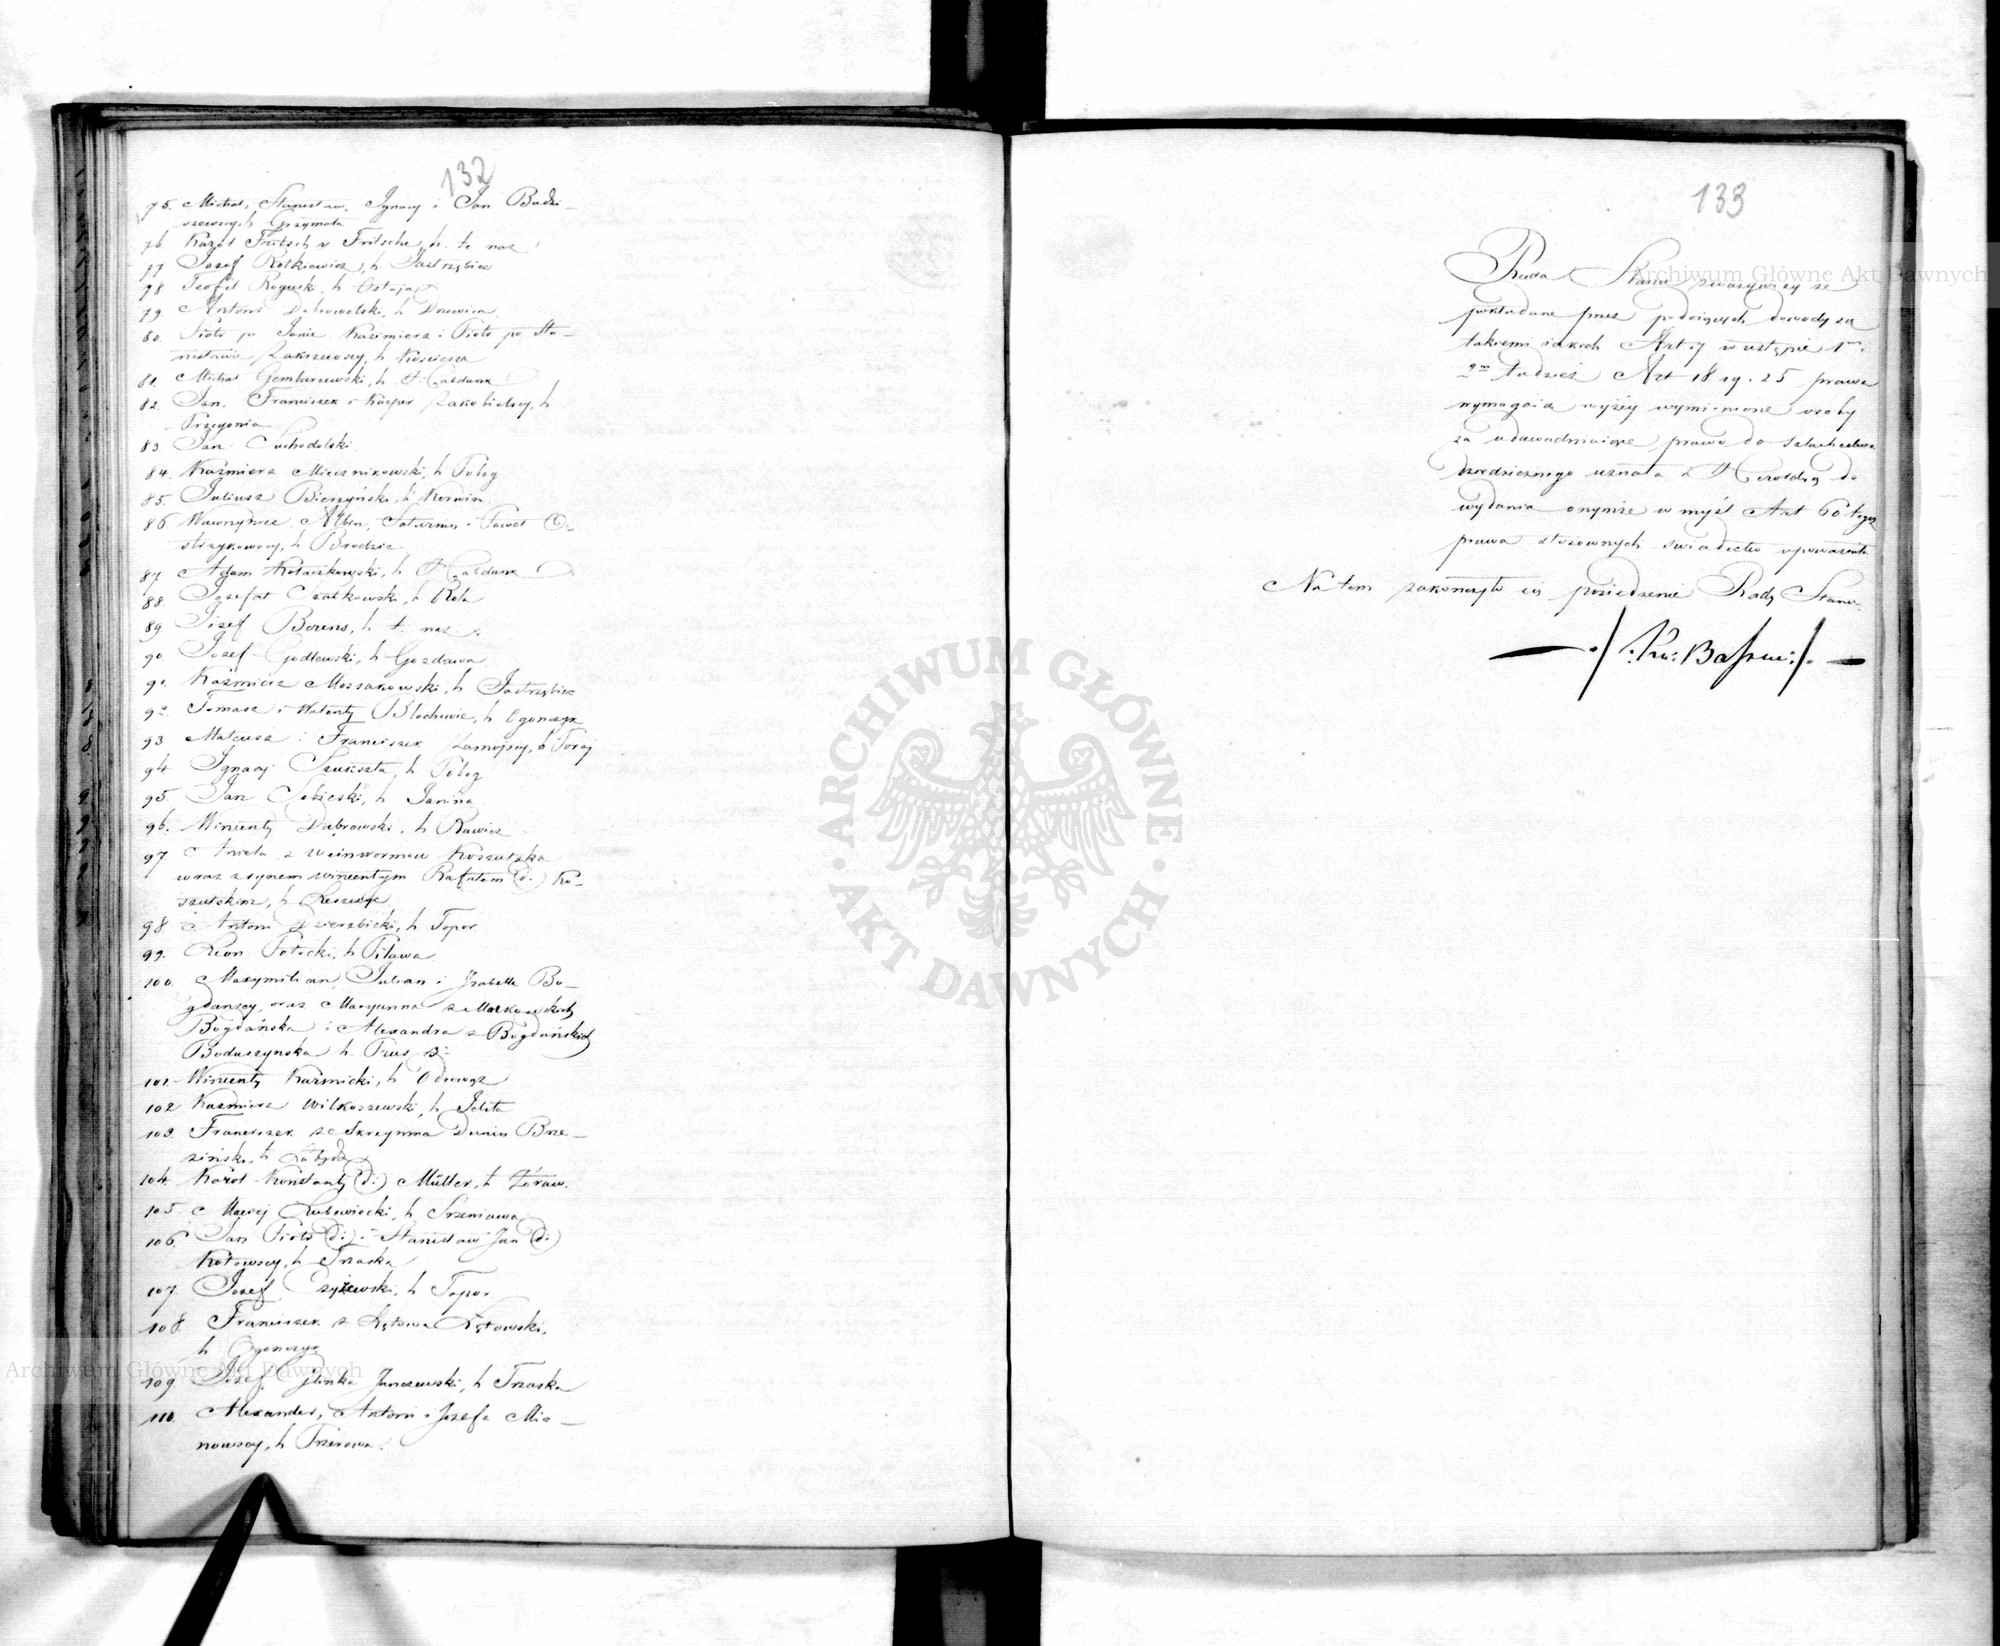 132
75. Michał, Stanisław, Ignacy i Jan Budzi-
szewscy, h. Grzymała
76. Karol Fritsch v Fritsche, h. t. naz.
77. Józef Rolkiewicz, h. Jastrzębiec
78. Teofil Roguski, h. Ostoja
79. Antoni Dobrowolski, h. Drzewica
80. Piotr po Janie Kazimierz i Piotr po Sta-
nisławie Zakrzewscy, h. Kościesza
81. Michał Gembarzewski, h. Habdank
82. Jan, Franciszek i Kacper Zakobielscy, h.
Przeginia
83. Jan Suchodolski
84. Kaźmierz Miecznikowski, h. Pobóg
85. Juliusz Bierzyński, h. Korwin
86. Wawrzyniec, Albin, Saturnin i Paweł O-
strzykowscy, h. Brodzic
87. Adam Kołaczkowski, h. Habdank
88. Jozefat Czałkowski, h. Rola
89. Józef Berens, h. t. naz.
90. Józef Godlewski, h. Gozdawa
91. Kaźmierz Mossakowski, h. Jastrzębiec
92. Tomasz i Walenty Błochowie, h. Ogończyk
93. Mateusz i Franciszek Zamojscy, h. Poraj
94. Ignacy Szukszta, h. Pobóg
95. Jan Sobieski, h. Janina
96. Wincenty Dąbrowski, h. Rawicz
97. Aniela z Weinwormów Koszutska
wraz z synem Wincentym Rafałem (2i.) Ko-
szutskim, h. Leszczyc
98. Antoni Dzierzbicki, h. Topor
99. Leon Potocki, h. Pilawa
100. Maxymilian, Julian i Izabella Bo-
gdańscy, oraz Maryanna z Markowskich
Bogdańska i Alexandra z Bogdańskich
Boduszyńska h. Prus 3º
101. Wincenty Kuźnicki, h. Odrowąż
102. Kaźmierz Wilkoszewski, h. Jelita
103. Franciszek ze Skrzynna Dunin Brze-
ziński, h. Łabędź
104. Karol Konstanty (2i.) Müller, h. Żóraw.
105. Maciej Lubowiecki, h. Szreniawa
106. Jan Piotr (2i.) i Stanisław Jan (2i.)
Kotowscy, h. Trzaska
107. Józef Czyżewski, h. Topor.
108. Franciszek z Łętowa Łętowski,
h. Ogończyk
109. Józef Glinka Janczewski, h. Trzaska
110. Alexander, Antoni i Jozefa Mia-
nowscy, h. Przerowa.
133
Rada Stanu zważywszy że
pokładane przez podaiących dowody są
takiemi jakich Art. 7 w ustępie 1m.
2m tudzież Art 18 19. 25 prawa
wymagaią wyżey wymienione osoby
za udowadniaiące prawo do szlachectwa
dziedzicznego uznała i Heroldyą do
wydania onymże w myśl Art 60 tegoż
prawa stosownych świadectw upoważniła
Na tem zakończyło się posiedzenie Rady Stanu.
ARCHIWUM GŁÓWNE
AKT DAWNYCH
Archiwum Główne Akt Dawnych
Archiwum Główne Akt Dawnych